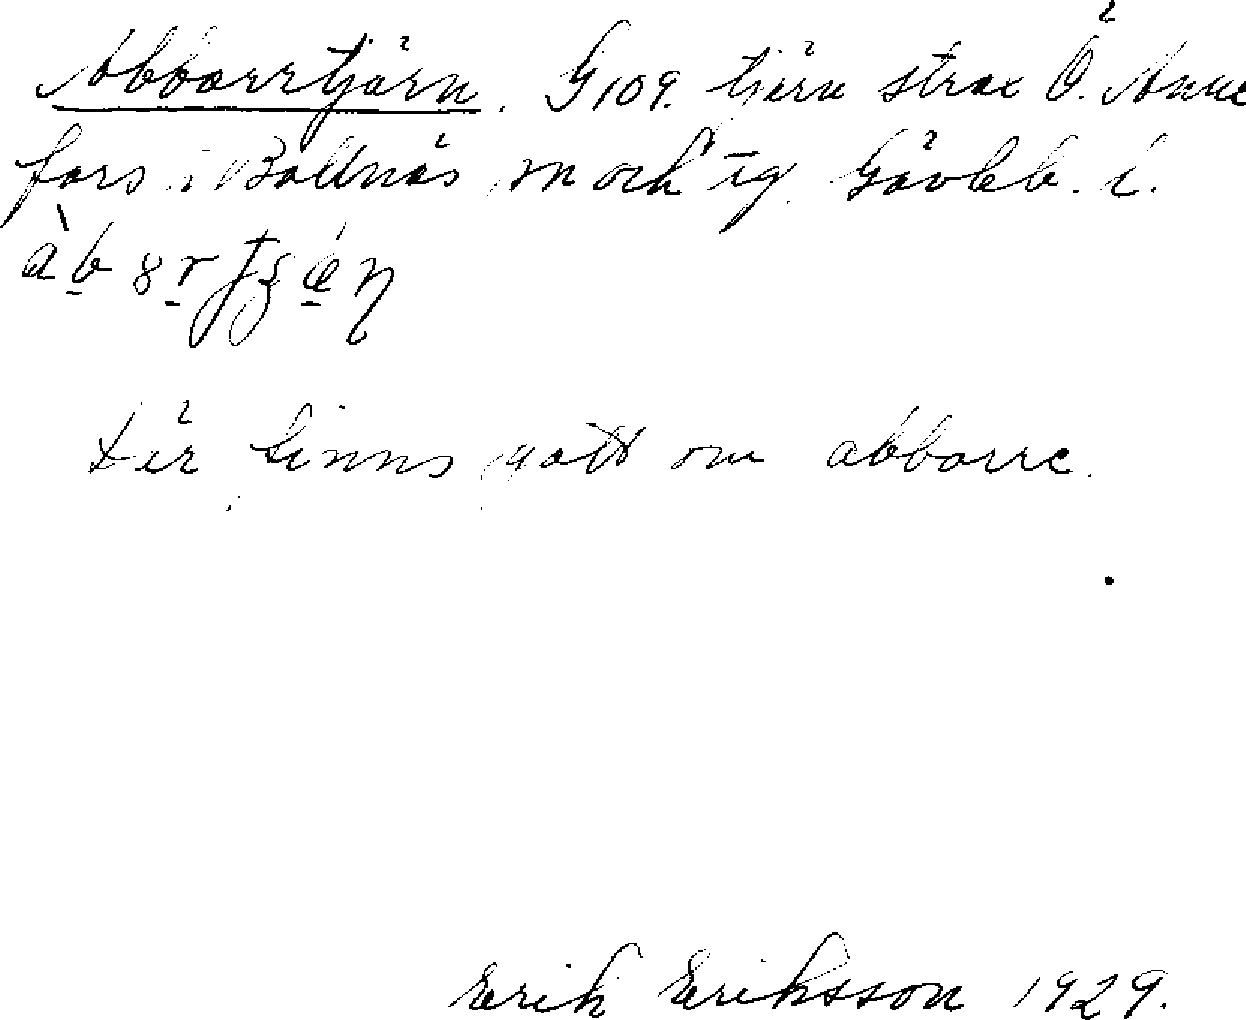 Abborrtjärn. G 109. tjärn strax Ö. Anne
fors i Bollnäs sn och tg. Gävleb. l.
Där finns gott om abborre.
Erik Eriksson 1929.